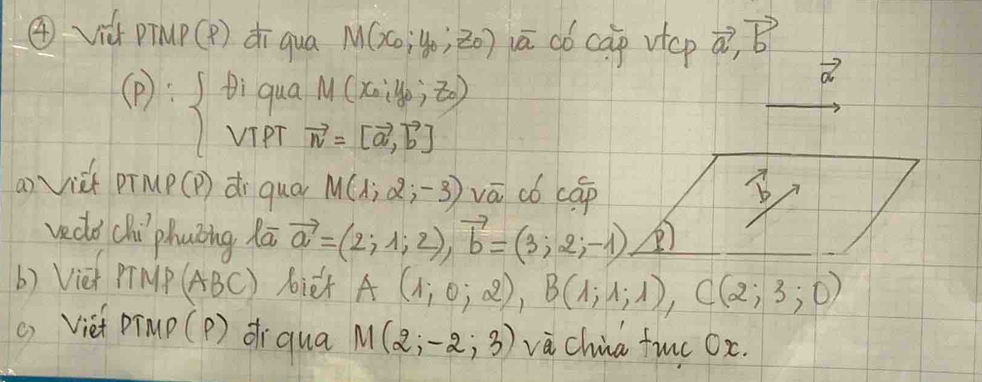 ④ Viết PTMP(P) đi qua M(x₀; y₀; z₀) và có cặp vtcp a⃗, b⃗
a⃗
(P): { Đi qua M(x₀; y₀; z₀)
VTPT n⃗ = [a⃗, b⃗]
b⃗
a) Viết PTMP(P) đi qua M(1; 2; -3) và có cặp
vectơ chỉ phương là a⃗ = (2; 1; 2), b⃗ = (3; 2; -1) P)
b) Viết PTMP(ABC) biết A (1; 0; 2), B(1; 1; 1), C(2; 3; 0)
c) Viết PTMP(P) đi qua M(2; -2; 3) và chứa trục Ox.